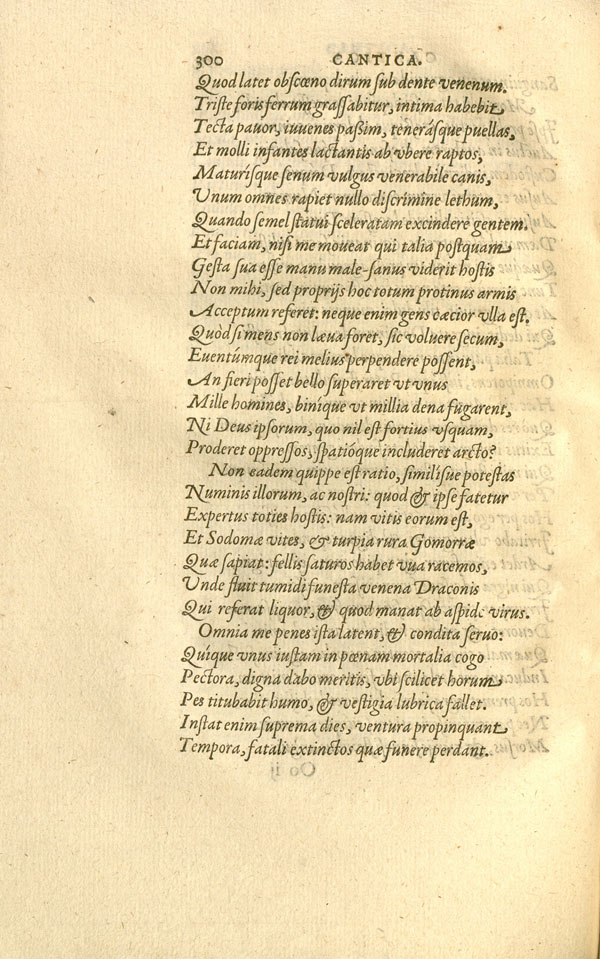 300 CANTICA.
Quod latet obscœno dirum sub dente venenum.
Triste foris ferrum grassabitur, intima habebit
Tecta pauor, iuuenes paßim, tenerásque puellas,
Et molli infantes lactantis ab vbere raptos,
Maturisque senum vulgus venerabile canis,
Vnum omnes rapiet nullo discrimine lethum,
Quando semel statui sceleratam excindere gentem.
Et faciam, nisi me moueat qui talia postquam
Gesta sua esse manu male-sanus viderit hostis
Non mihi, sed proprijs hoc totum protinus armis
Acceptum referet: neque enim gens cæcior vlla est.
Quòd si mens non læua foret, sic voluere secum,
Euentúmque rei melius perpendere possent,
An fieri posset bello superaret vt vnus
Mille homines, binique vt millia dena fugarent,
Ni Deus ipsorum, quo nil est fortius vsquam,
Proderet oppressos, spatióque includeret arcto?
Non eadem quippe est ratio, similisue potestas
Numinis illorum, ac nostri: quod & ipse fatetur
Expertus toties hostis: nam vitis eorum est,
Et Sodomæ vites, & turpia rura Gomorræ
Quæ sapiat: fellis saturos habet vua racemos,
Vnde fluit tumidi funesta venena Draconis
Qui referat liquor, & quod manat ab aspide virus.
Omnia me penes ista latent, & condita seruo:
Quique vnus iustam in pœnam mortalia cogo
Pectora, digna dabo meritis, vbi scilicet horum
Pes titubabit humo, & vestigia lubrica fallet.
Instat enim suprema dies, ventura propinquant
Tempora, fatali extinctos quæ funere perdant.